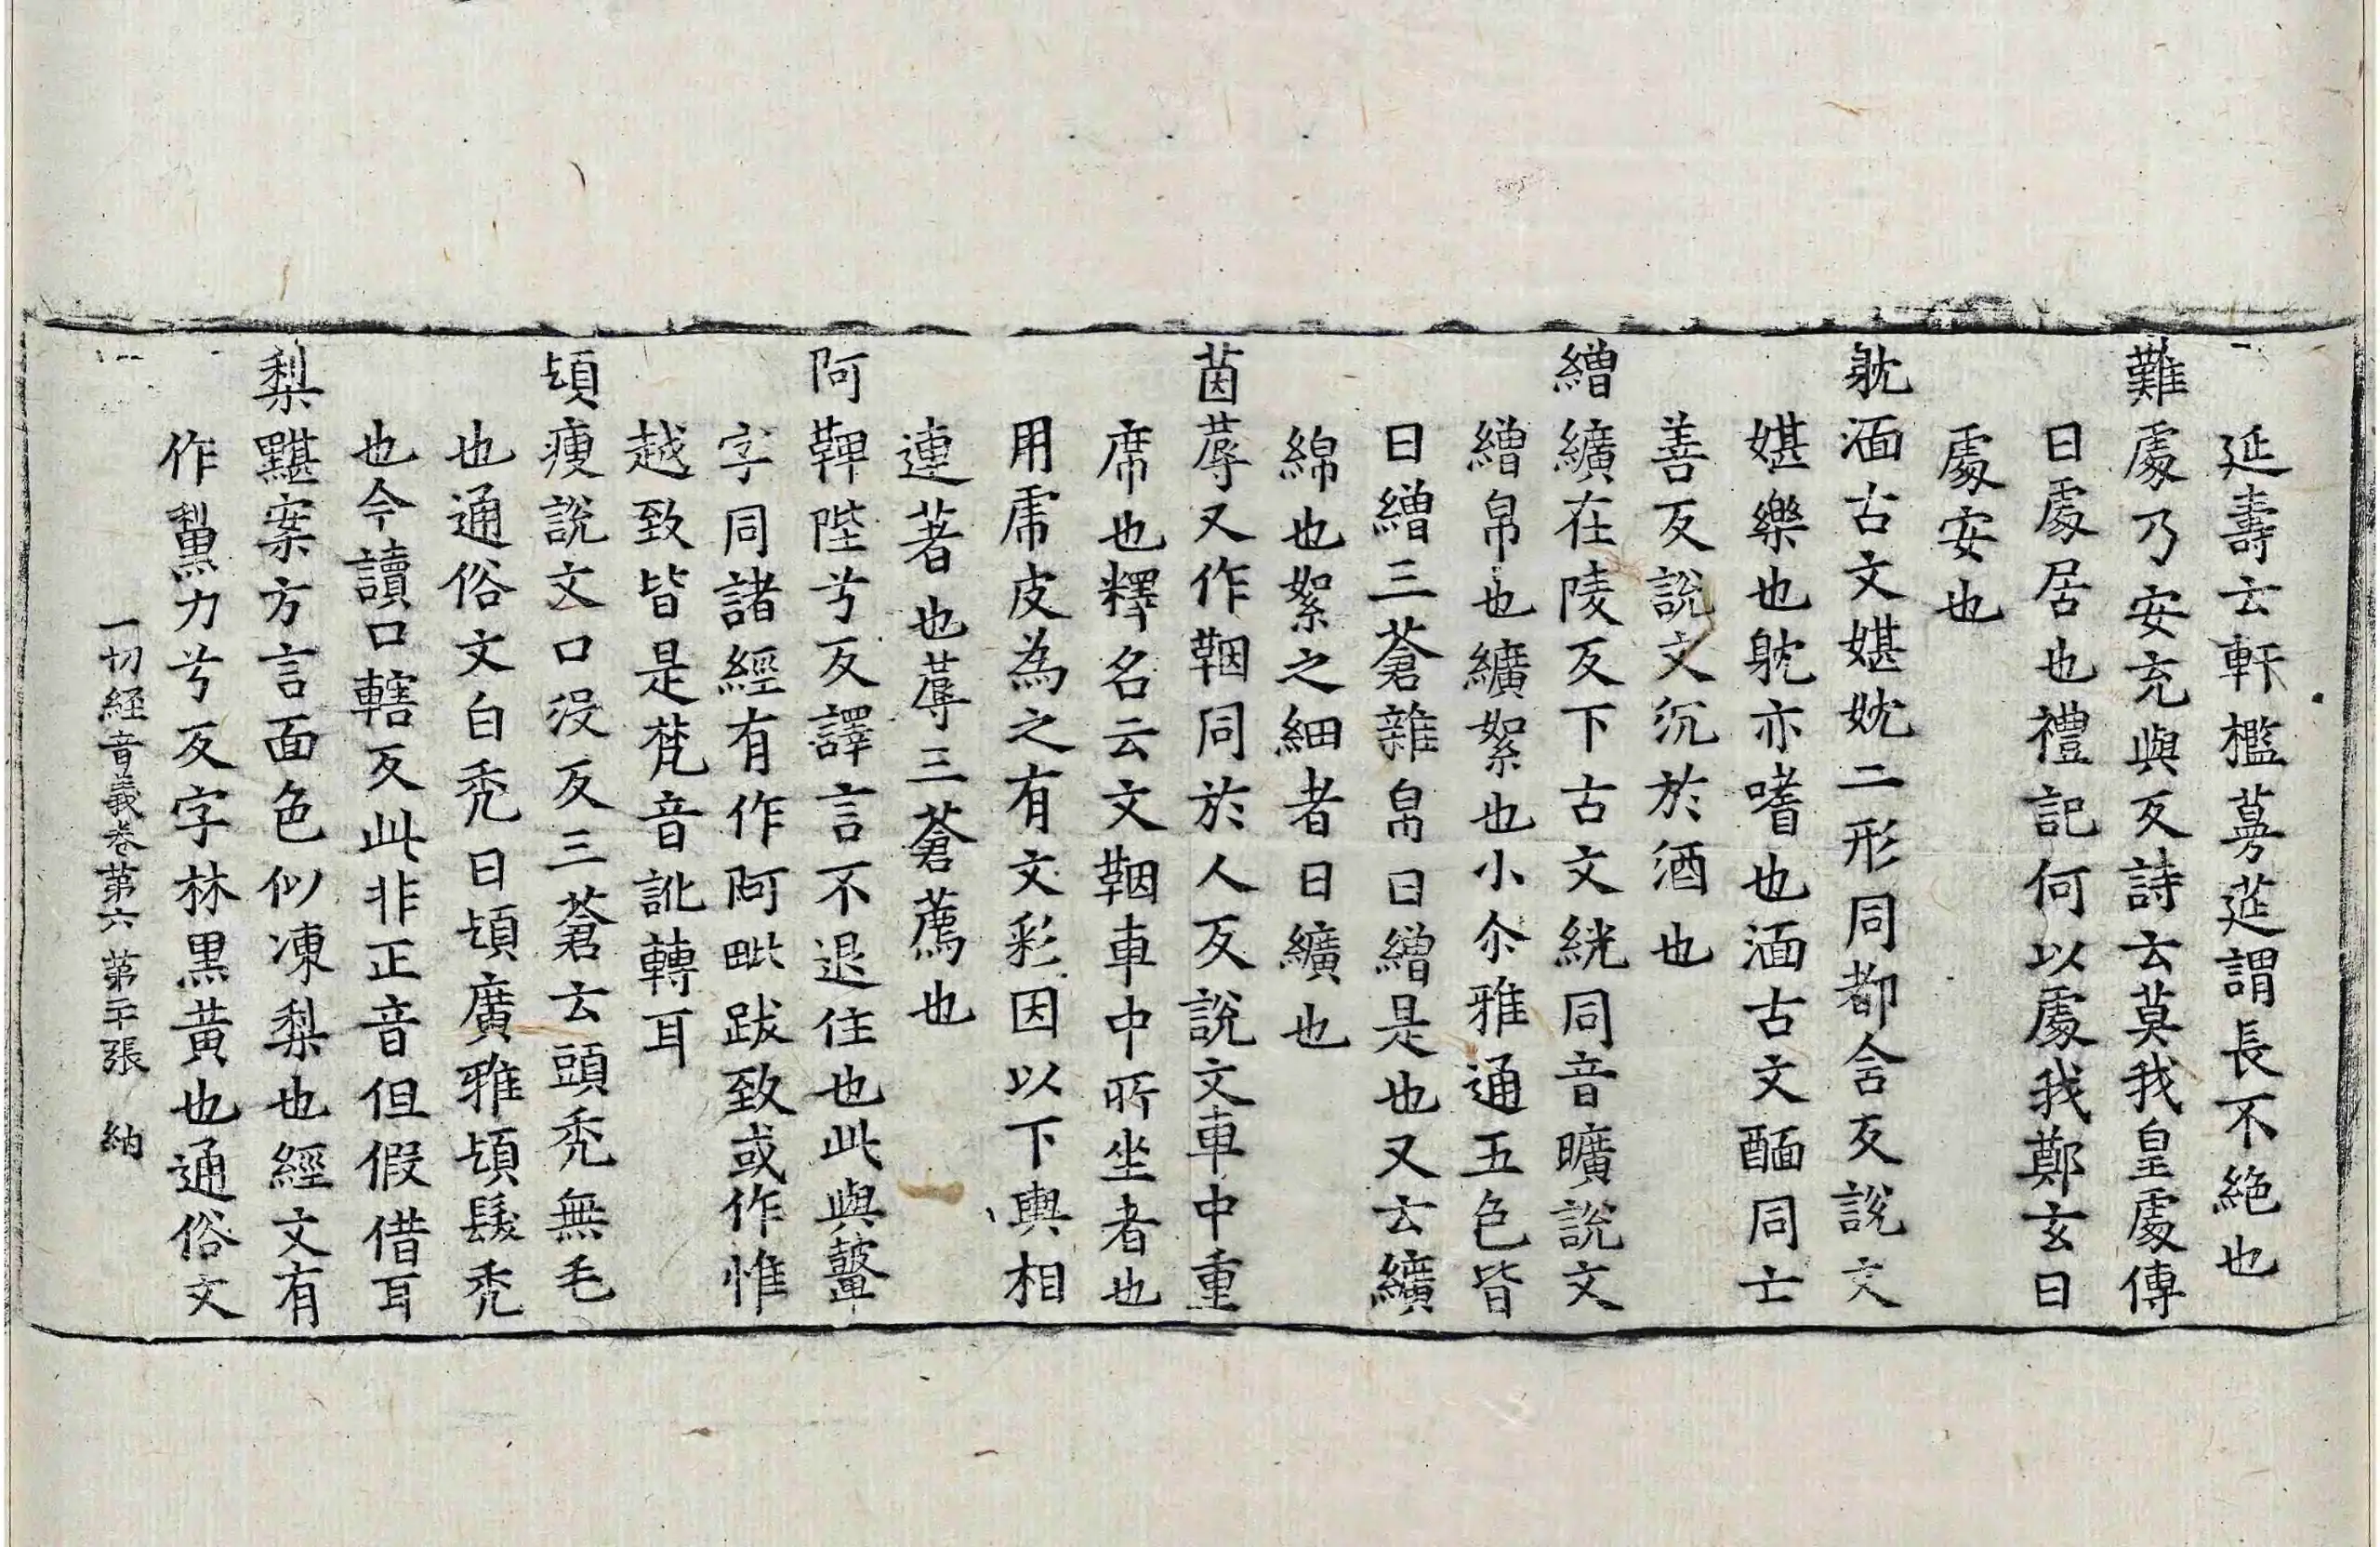 延壽云軒檻蔓莚謂長不絶也
難處乃安充與反詩云莫我皇處傳
曰處居也禮記何以處我鄭玄曰
處安也
躭湎古文媅妉二形同都含反說文
媅樂也躭亦嗜也湎古文酾同亡
善反說文沉於酒也
繒纊在陵反下古文絖同音曠說文
繒帛也纊絮也小尒雅通五色皆
曰繒三蒼雜帛曰繒是也又云纊
綿也絮之細者曰纊也
茵蓐又作鞇同於人反說文車中重
席也釋名云文鞇車中所坐者也
用虎皮為之有文彩因以下輿相
連著也蓐三蒼薦也
阿鞞陛兮反譯言不退住也此與鼙
字同諸經有作阿毗跋致或作惟
越致皆是梵音訛轉耳
頄瘦說文口没反三蒼云頭禿無毛
也通俗文白禿曰頄廣雅頄鬜禿
也今讀口轄反此非正音但假借耳
梨黮案方言面色似凍梨也經文有
作黧力兮反字林黑黃也通俗文
一切經音義卷第六 第二十張 納